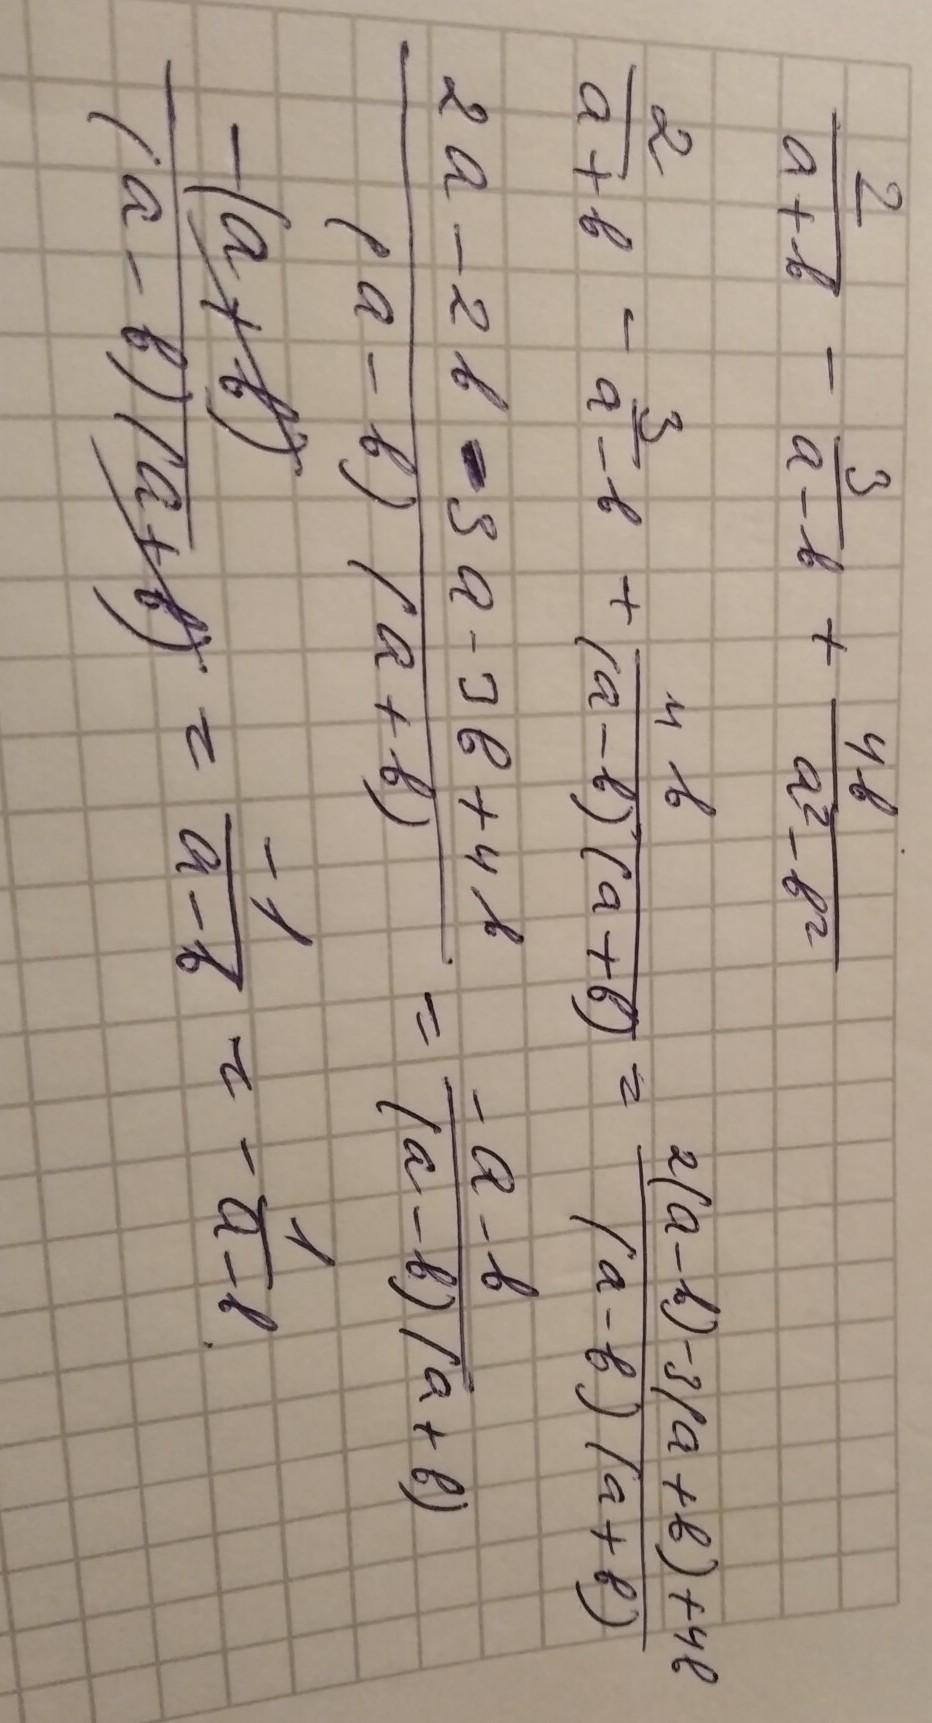 2/(a+b) - 3/(a-b) + 4b/(a²-b²)
2/(a+b) - 3/(a-b) + 4b/((a-b)(a+b)) = (2(a-b)-3(a+b)+4b)/((a-b)(a+b))
(2a-2b-3a-3b+4b)/((a-b)(a+b)) = (-a-b)/((a-b)(a+b))
-(a+b)/((a-b)(a+b)) = -1/(a-b) = -1/(a-b).